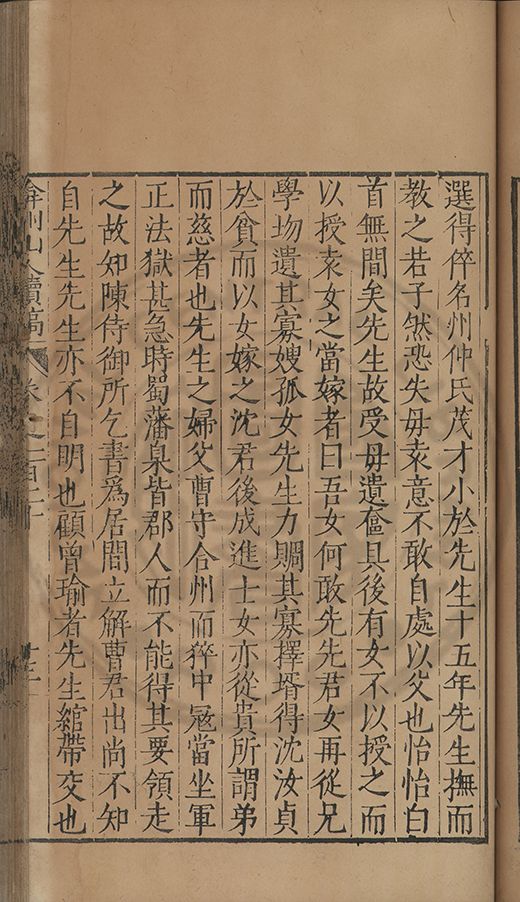 選得倅名州仲氏茂才小於先生十五年先生撫而
教之若子然恐失毋袁意不敢自處以父也怡怡白
首無間矣先生故受毋遺奩具後有女不以授之而
以授袁女之當嫁者曰吾女何敢先先君女再從兄
學圽遺其寡嫂孤女先生力賙其寡擇壻得沈汝貞
於貧而以女嫁之沈君後成進士女亦從貴所謂弟
而慈者也先生之婦父曹守合州而猝中冦當坐軍
正法獄甚急時蜀藩臬皆郡人而不能得其要領走
之故知陳侍御所乞書爲居間立解曹君出尚不知
自先生先生亦不自明也顧曾瑜者先生綰帶交也
弇州山人續稿
卷之一百二十
十三